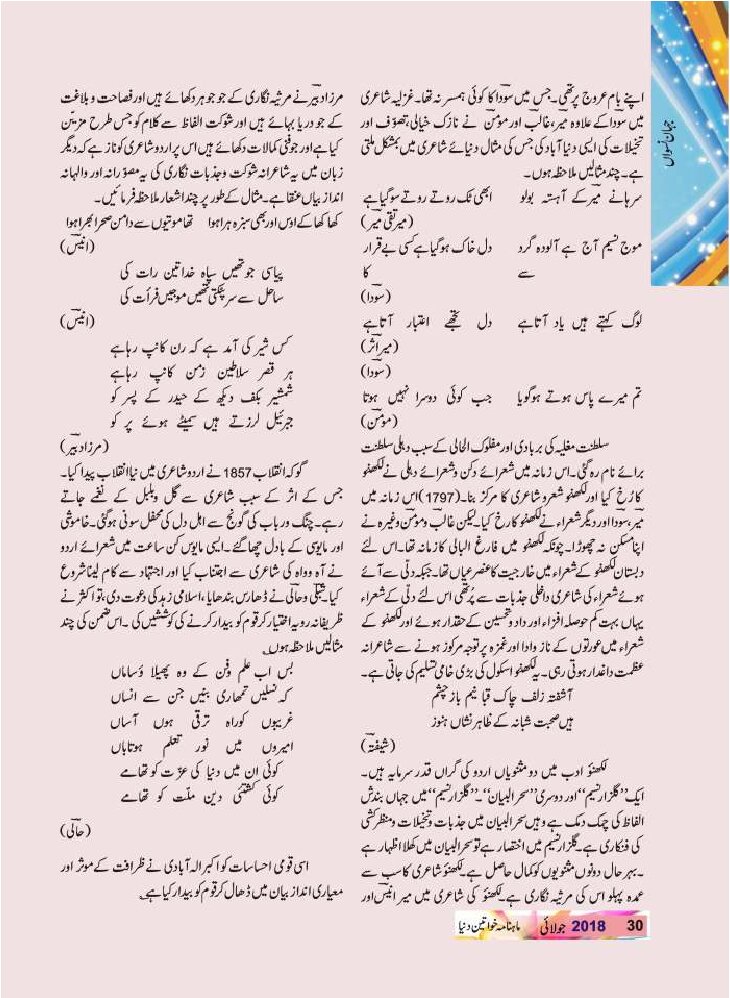 جہان نسواں
اپنے بام عروج پر تھی۔ جس میں سودا کا کوئی ہمسر نہ تھا۔ غزلیہ شاعری
میں سودا کے علاوہ میر، غالب اور مومن نے نازک خیالی، تصوف اور
تخیلات کی ایسی دنیا آباد کی جس کی مثال دنیائے شاعری میں بمشکل ملتی
ہے۔ چند مثالیں ملاحظہ ہوں۔
سرہانے میر کے آہستہ بولو ابھی ٹک روتے روتے سو گیا ہے
(میر تقی میر)
موج نسیم آج ہے آلودہ گرد سے دل خاک ہو گیا ہے کسی بے قرار کا
(سودا)
لوگ کہتے ہیں یاد آتا ہے دل تجھے اعتبار آتا ہے
(میر اثر)
(سودا)
تم میرے پاس ہوتے ہو گویا جب کوئی دوسرا نہیں ہوتا
(مومن)
سلطنت مغلیہ کی بربادی اور مفلوک الحالی کے سبب دہلی سلطنت
برائے نام رہ گئی۔ اس زمانہ میں شعرائے دکن و شعرائے دہلی نے لکھنؤ
کا رُخ کیا اور لکھنؤ شعر و شاعری کا مرکز بنا۔ (1797) اس زمانہ میں
میر، سودا اور دیگر شعراء نے لکھنؤ کا رخ کیا۔ لیکن غالب و مومن وغیرہ نے
اپنا مسکن نہ چھوڑا۔ چونکہ لکھنؤ میں فارغ البالی کا زمانہ تھا۔ اس لئے
دبستان لکھنؤ کے شعراء میں خارجیت کا عنصر عیاں تھا۔ جبکہ دلی سے آئے
ہوئے شعراء کی شاعری داخلی جذبات سے پُر تھی اس لئے دلی کے شعراء
یہاں بہت کم حوصلہ افزاء اور داد و تحسین کے حقدار ہوئے اور لکھنؤ کے
شعراء میں عورتوں کے ناز و ادا اور غمزہ پر توجہ مرکوز ہونے سے شاعرانہ
عظمت داغدار ہوتی رہی۔ یہ لکھنؤ اسکول کی بڑی خامی تسلیم کی جاتی ہے۔
آشفتہ زلف چاک قبا نیم باز چشم
ہیں صحبت شبانہ کے ظاہر نشاں ہنوز
(شیفتہ)
لکھنؤ ادب میں دو مثنویاں اردو کی گراں قدر سرمایہ ہیں۔
ایک ”گلزار نسیم“ اور دوسری ”سحر البیان“۔ ”گلزار نسیم“ میں جہاں بندش
الفاظ کی چمک دمک ہے وہیں سحر البیان میں جذبات و تخیلات و منظر کشی
کی فنکاری ہے۔ گلزار نسیم میں اختصار ہے تو سحر البیان میں کھلا اظہار ہے
۔ بہر حال دونوں مثنویوں کو کمال حاصل ہے۔ لکھنؤ شاعری کا سب سے
عمدہ پہلو اس کی مرثیہ نگاری ہے۔ لکھنؤ کی شاعری میں میر انیس اور
مرزا دبیر نے مرثیہ نگاری کے جو جوہر دکھائے ہیں اور فصاحت و بلاغت
کے جو دریا بہائے ہیں اور شوکت الفاظ سے کلام کو جس طرح مزین
کیا ہے اور جو فنی کمالات دکھائے ہیں اس پر اردو شاعری کو ناز ہے کہ دیگر
زبان میں یہ شاعرانہ شوکت و جذبات نگاری کی یہ مصورانہ اور والہانہ
انداز بیاں عنقا ہے۔ مثال کے طور پر چند اشعار ملاحظہ فرمائیں۔
کھا کھا کے اوس اور بھی سبزہ ہرا ہوا تھا موتیوں سے دامن صحرا بھرا ہوا
(انیس)
پیاسی جو تھیں سپاہ خدا تین رات کی
ساحل سے سر پٹکتی تھیں موجیں فرأت کی
(انیس)
کس شیر کی آمد ہے کہ رن کانپ رہا ہے
ہر قصر سلاطین زمن کانپ رہا ہے
شمشیر بکف دیکھ کے حیدر کے پسر کو
جبرئیل لرزتے ہیں سمیٹے ہوئے پر کو
(مرزا دبیر)
گو کہ انقلاب 1857 نے اردو شاعری میں نیا انقلاب پیدا کیا۔
جس کے اثر کے سبب شاعری سے گل و بلبل کے نغمے جاتے
رہے۔ چنگ و رباب کی گونج سے اہل دل کی محفل سونی ہو گئی۔ خاموشی
اور مایوسی کے بادل چھا گئے۔ ایسی مایوس کن ساعت میں شعرائے اردو
نے آہ و واہ کی شاعری سے اجتناب کیا اور اجتہاد سے کام لینا شروع
کیا۔ شبلی و حالی نے ڈھارس بندھایا، اسلامی زندگی دعوت دی، تو اکثر نے
ظریفانہ رویہ اختیار کر قوم کو بیدار کرنے کی کوششیں کی۔ اس ضمن کی چند
مثالیں ملاحظہ ہوں۔
بس اب علم و فن کے وہ پھیلا ؤ ساماں
کہ نسلیں تمھاری بنیں جن سے انساں
غریبوں کو راہ ترقی ہوں آساں
امیروں میں نور تعلم ہو تاباں
کوئی ان میں دنیا کی عزت کو تھامے
کوئی کشتئی دین ملت کو تھامے
(حالی)
اسی قومی احساسات کو اکبر الہ آبادی نے ظرافت کے موثر اور
معیاری انداز بیان میں ڈھال کر قوم کو بیدار کیا ہے۔
30 2018 جولائی ماہنامہ خواتین دنیا